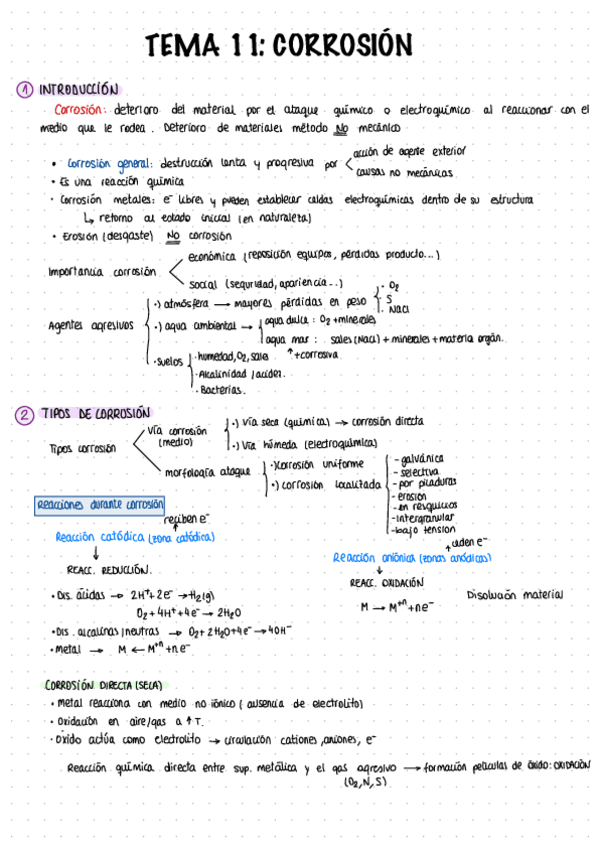 TEMA 11: CORROSIÓN
1 INTRODUCCIÓN
Corrosión: deterioro del material por el ataque químico o electroquímico al reaccionar con el
medio que le rodea. Deterioro de materiales método NO mecánico
• Corrosión general: destrucción lenta y progresiva por < acción de agente exterior
causas no mecánicas
• Es una reacción química
• Corrosión metales: e⁻ libres y pueden establecer celdas electroquímicas dentro de su estructura
↳ retorno al estado inicial (en naturaleza)
• Erosión (desgaste) NO corrosión
Importancia corrosión < económica (reposición equipos, pérdidas producto...)
social (seguridad, apariencia...)
Agentes agresivos
•) atmósfera → mayores pérdidas en peso { · O₂
· S
· NaCl
•) agua ambiental → agua dulce: O₂ + minerales
agua mar: sales (NaCl) + minerales + materia orgán.
↑ + corrosiva
•suelos · humedad, O₂, sales
· Alcalinidad / acidez.
· Bacterias.
2 TIPOS DE CORROSIÓN
Tipos corrosión
Vía corrosión (medio)
•) Vía seca (química) → corrosión directa
•) Vía húmeda (electroquímica)
morfología ataque
•) Corrosión uniforme
•) corrosión localizada
- galvánica
- selectiva
- por picaduras
- erosión
- en resquicios
- intergranular
- bajo tensión
Reacciones durante corrosión
reciben e⁻
Reacción catódica (zona catódica)
↓
REACC. REDUCCIÓN.
• Dis. ácidas → 2H⁺ + 2e⁻ → H₂(g)
O₂ + 4H⁺ + 4e⁻ → 2H₂O
• Dis. alcalinas/neutras → O₂ + 2H₂O + 4e⁻ → 4OH⁻
• Metal → M ← M⁺ⁿ + ne⁻
ceden e⁻
Reacción aniónica (zonas anódicas)
↓
REACC. OXIDACIÓN
M → M⁺ⁿ + ne⁻
Disolución material
CORROSIÓN DIRECTA (SECA)
• Metal reacciona con medio no iónico (ausencia de electrolito)
• Oxidación en aire/gas a ↑ T.
• Óxido actúa como electrolito → circulación cationes, aniones, e⁻
Reacción química directa entre sup. metálica y el gas agresivo → formación películas de óxido: OXIDACIÓN
(O₂, N, S)